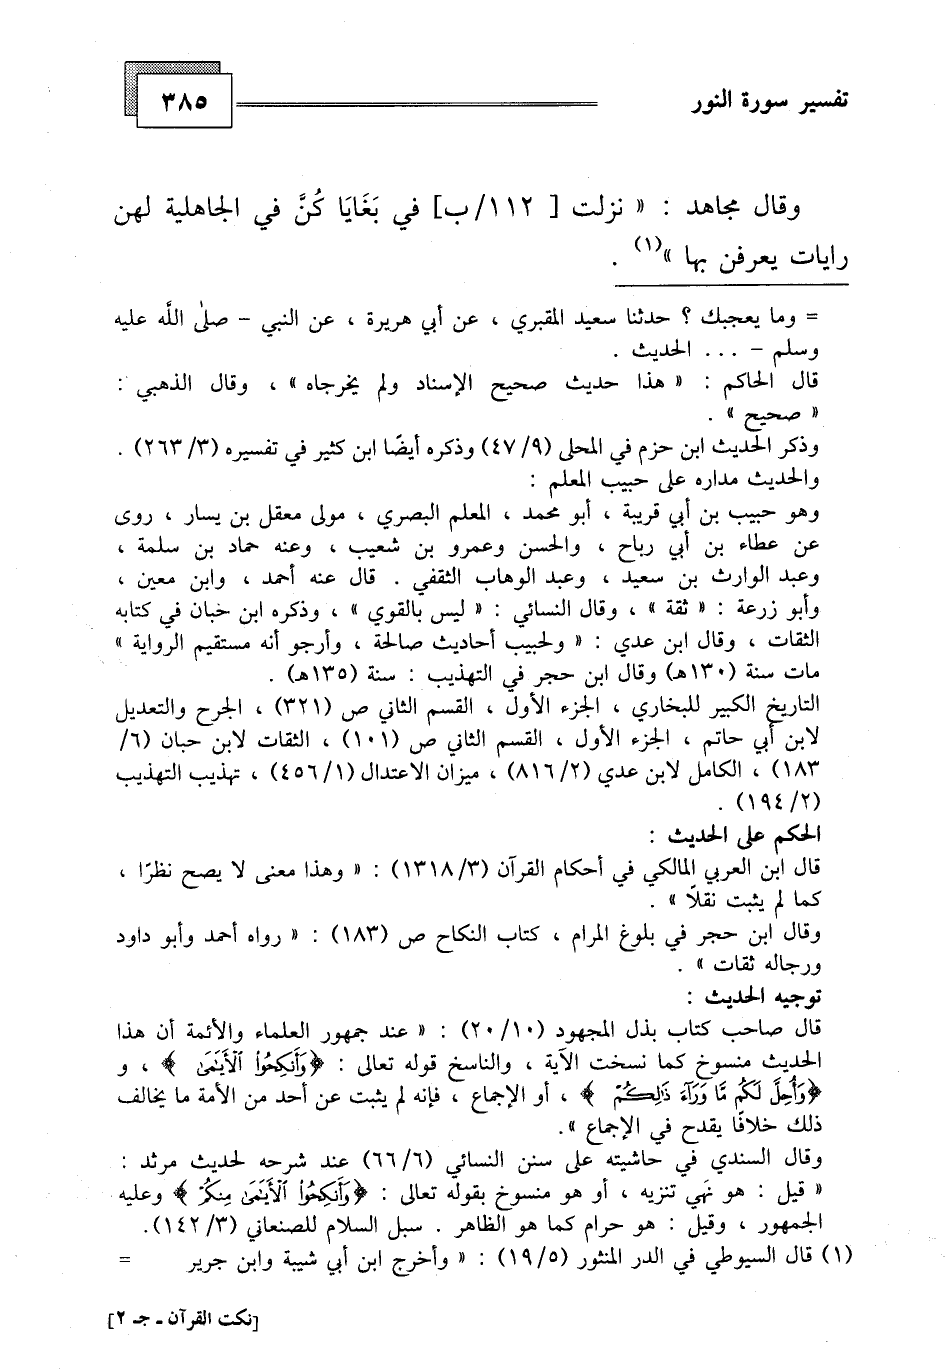 تفسير سورة النور
٣٨٥
وقال مجاهد : « نزلت [ ١١٢/ب] في بَغَايَا كُنَّ في الجاهلية لهن
رايات يعرفن بها »(١) .
= وما يعجبك ؟ حدثنا سعيد المقبري ، عن أبي هريرة ، عن النبي – صلى الله عليه
وسلم – ... الحديث .
قال الحاكم : « هذا حديث صحيح الإسناد ولم يخرجاه » ، وقال الذهبي :
« صحيح » .
وذكر الحديث ابن حزم في المحلى (٤٧/٩) وذكره أيضًا ابن كثير في تفسيره (٢٦٣/٣) .
والحديث مداره على حبيب المعلم :
وهو حبيب بن أبي قريبة ، أبو محمد ، المعلم البصري ، مولى معقل بن يسار ، روى
عن عطاء بن أبي رباح ، والحسن وعمرو بن شعيب ، وعنه حماد بن سلمة ،
وعبد الوارث بن سعيد ، وعبد الوهاب الثقفي . قال عنه أحمد ، وابن معين ،
وأبو زرعة : « ثقة » ، وقال النسائي : « ليس بالقوي » ، وذكره ابن خبان في كتابه
الثقات ، وقال ابن عدي : « ولحبيب أحاديث صالحة ، وأرجو أنه مستقيم الرواية »
مات سنة (١٣٠هـ) وقال ابن حجر في التهذيب : سنة (١٣٥هـ) .
التاريخ الكبير للبخاري ، الجزء الأول ، القسم الثاني ص (٣٢١) ، الجرح والتعديل
لابن أبي حاتم ، الجزء الأول ، القسم الثاني ص (١٠١) ، الثقات لابن حبان (٦/
١٨٣) ، الكامل لابن عدي (٨١٦/٢) ، ميزان الاعتدال (٤٥٦/١) ، تهذيب التهذيب
(١٩٤/٢) .
الحكم على الحديث :
قال ابن العربي المالكي في أحكام القرآن (١٣١٨/٣) : « وهذا معنى لا يصح نظرًا ،
كما لم يثبت نقلًا » .
وقال ابن حجر في بلوغ المرام ، كتاب النكاح ص (١٨٣) : « رواه أحمد وأبو داود
ورجاله ثقات » .
توجيه الحديث :
قال صاحب كتاب بذل المجهود (٢٠/١٠) : « عند جمهور العلماء والأئمة أن هذا
الحديث منسوخ كما نسخت الآية ، والناسخ قوله تعالى : ﴿وَأَنكِحُوا۟ ٱلْأَيَـٰمَىٰ ﴾ ، و
﴿وَأُحِلَّ لَكُم مَّا وَرَآءَ ذَٰلِكُمْ ﴾ ، أو الإجماع ، فإنه لم يثبت عن أحد من الأمة ما يخالف
ذلك خلافًا يقدح في الإجماع ».
وقال السندي في حاشيته على سنن النسائي (٦٦/٦) عند شرحه لحديث مرثد :
« قيل : هو نهي تنزيه ، أو هو منسوخ بقوله تعالى : ﴿وَأَنكِحُوا۟ ٱلْأَيَـٰمَىٰ مِنكُمْ ﴾ وعليه
الجمهور ، وقيل : هو حرام كما هو الظاهر . سبل السلام للصنعاني (١٤٢/٣).
(١) قال السيوطي في الدر المنثور (١٩/٥) : « وأخرج ابن أبي شيبة وابن جرير =
[نكت القرآن ـ جـ ٢]